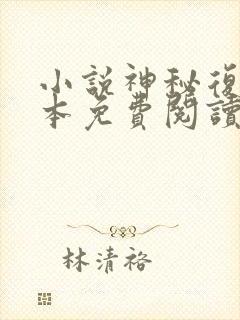 小説神秘復
本免費閱讀
林清裕